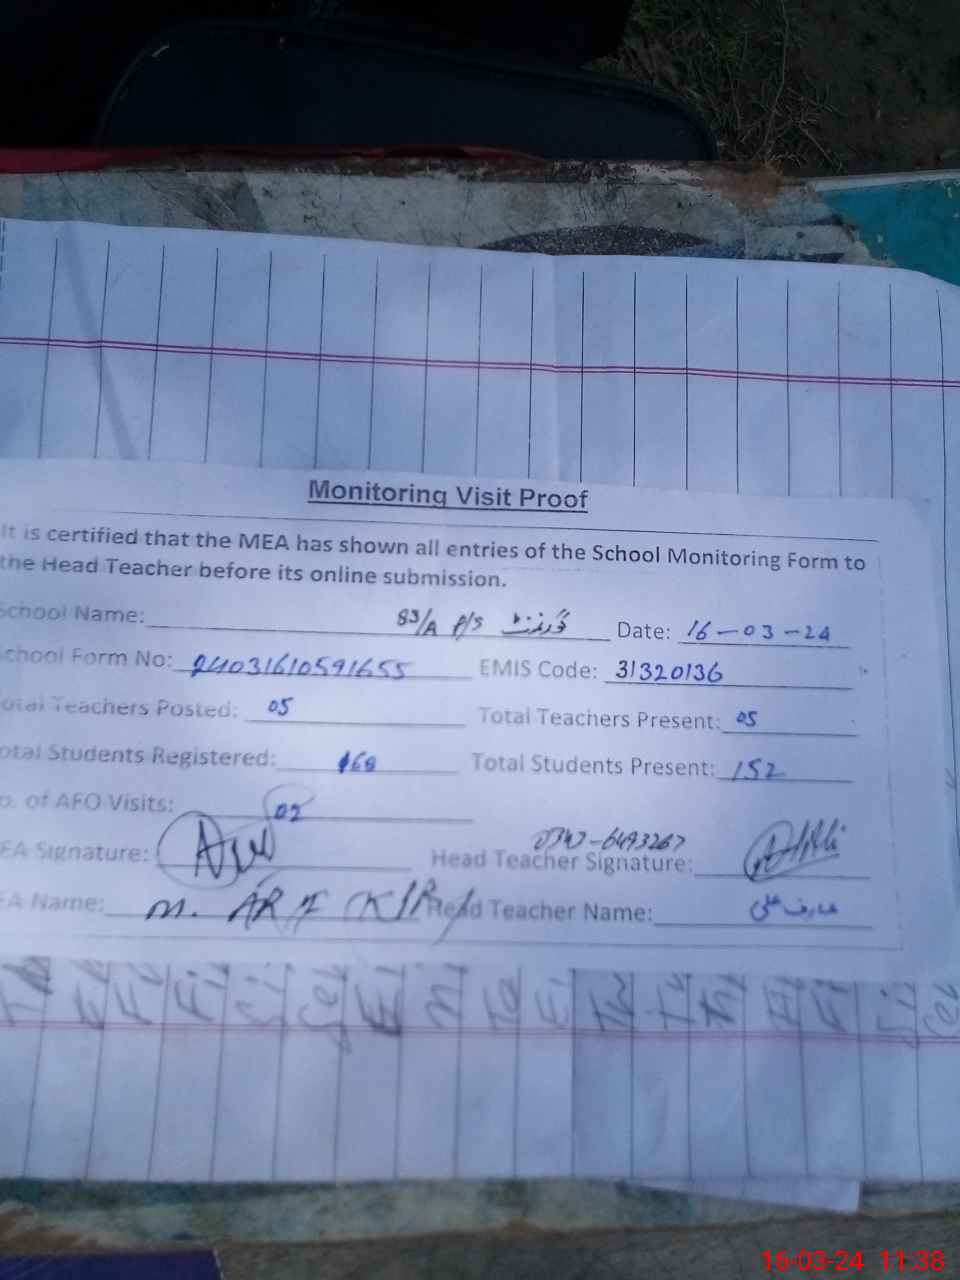 Monitoring Visit Proof
It is certified that the MEA has shown all entries of the School Monitoring Form to
the Head Teacher before its online submission.
School Name: 83/A P/S گورنمنٹ Date: 16-03-24
School Form No: 24031610591655 EMIS Code: 31320136
Total Teachers Posted: 05 Total Teachers Present: 05
Total Students Registered: 168 Total Students Present: 152
No. of AEO Visits: 02
MEA Signature: Head Teacher Signature:
MEA Name: M. ARIF Head Teacher Name: عارف علی
16-03-24 11:38